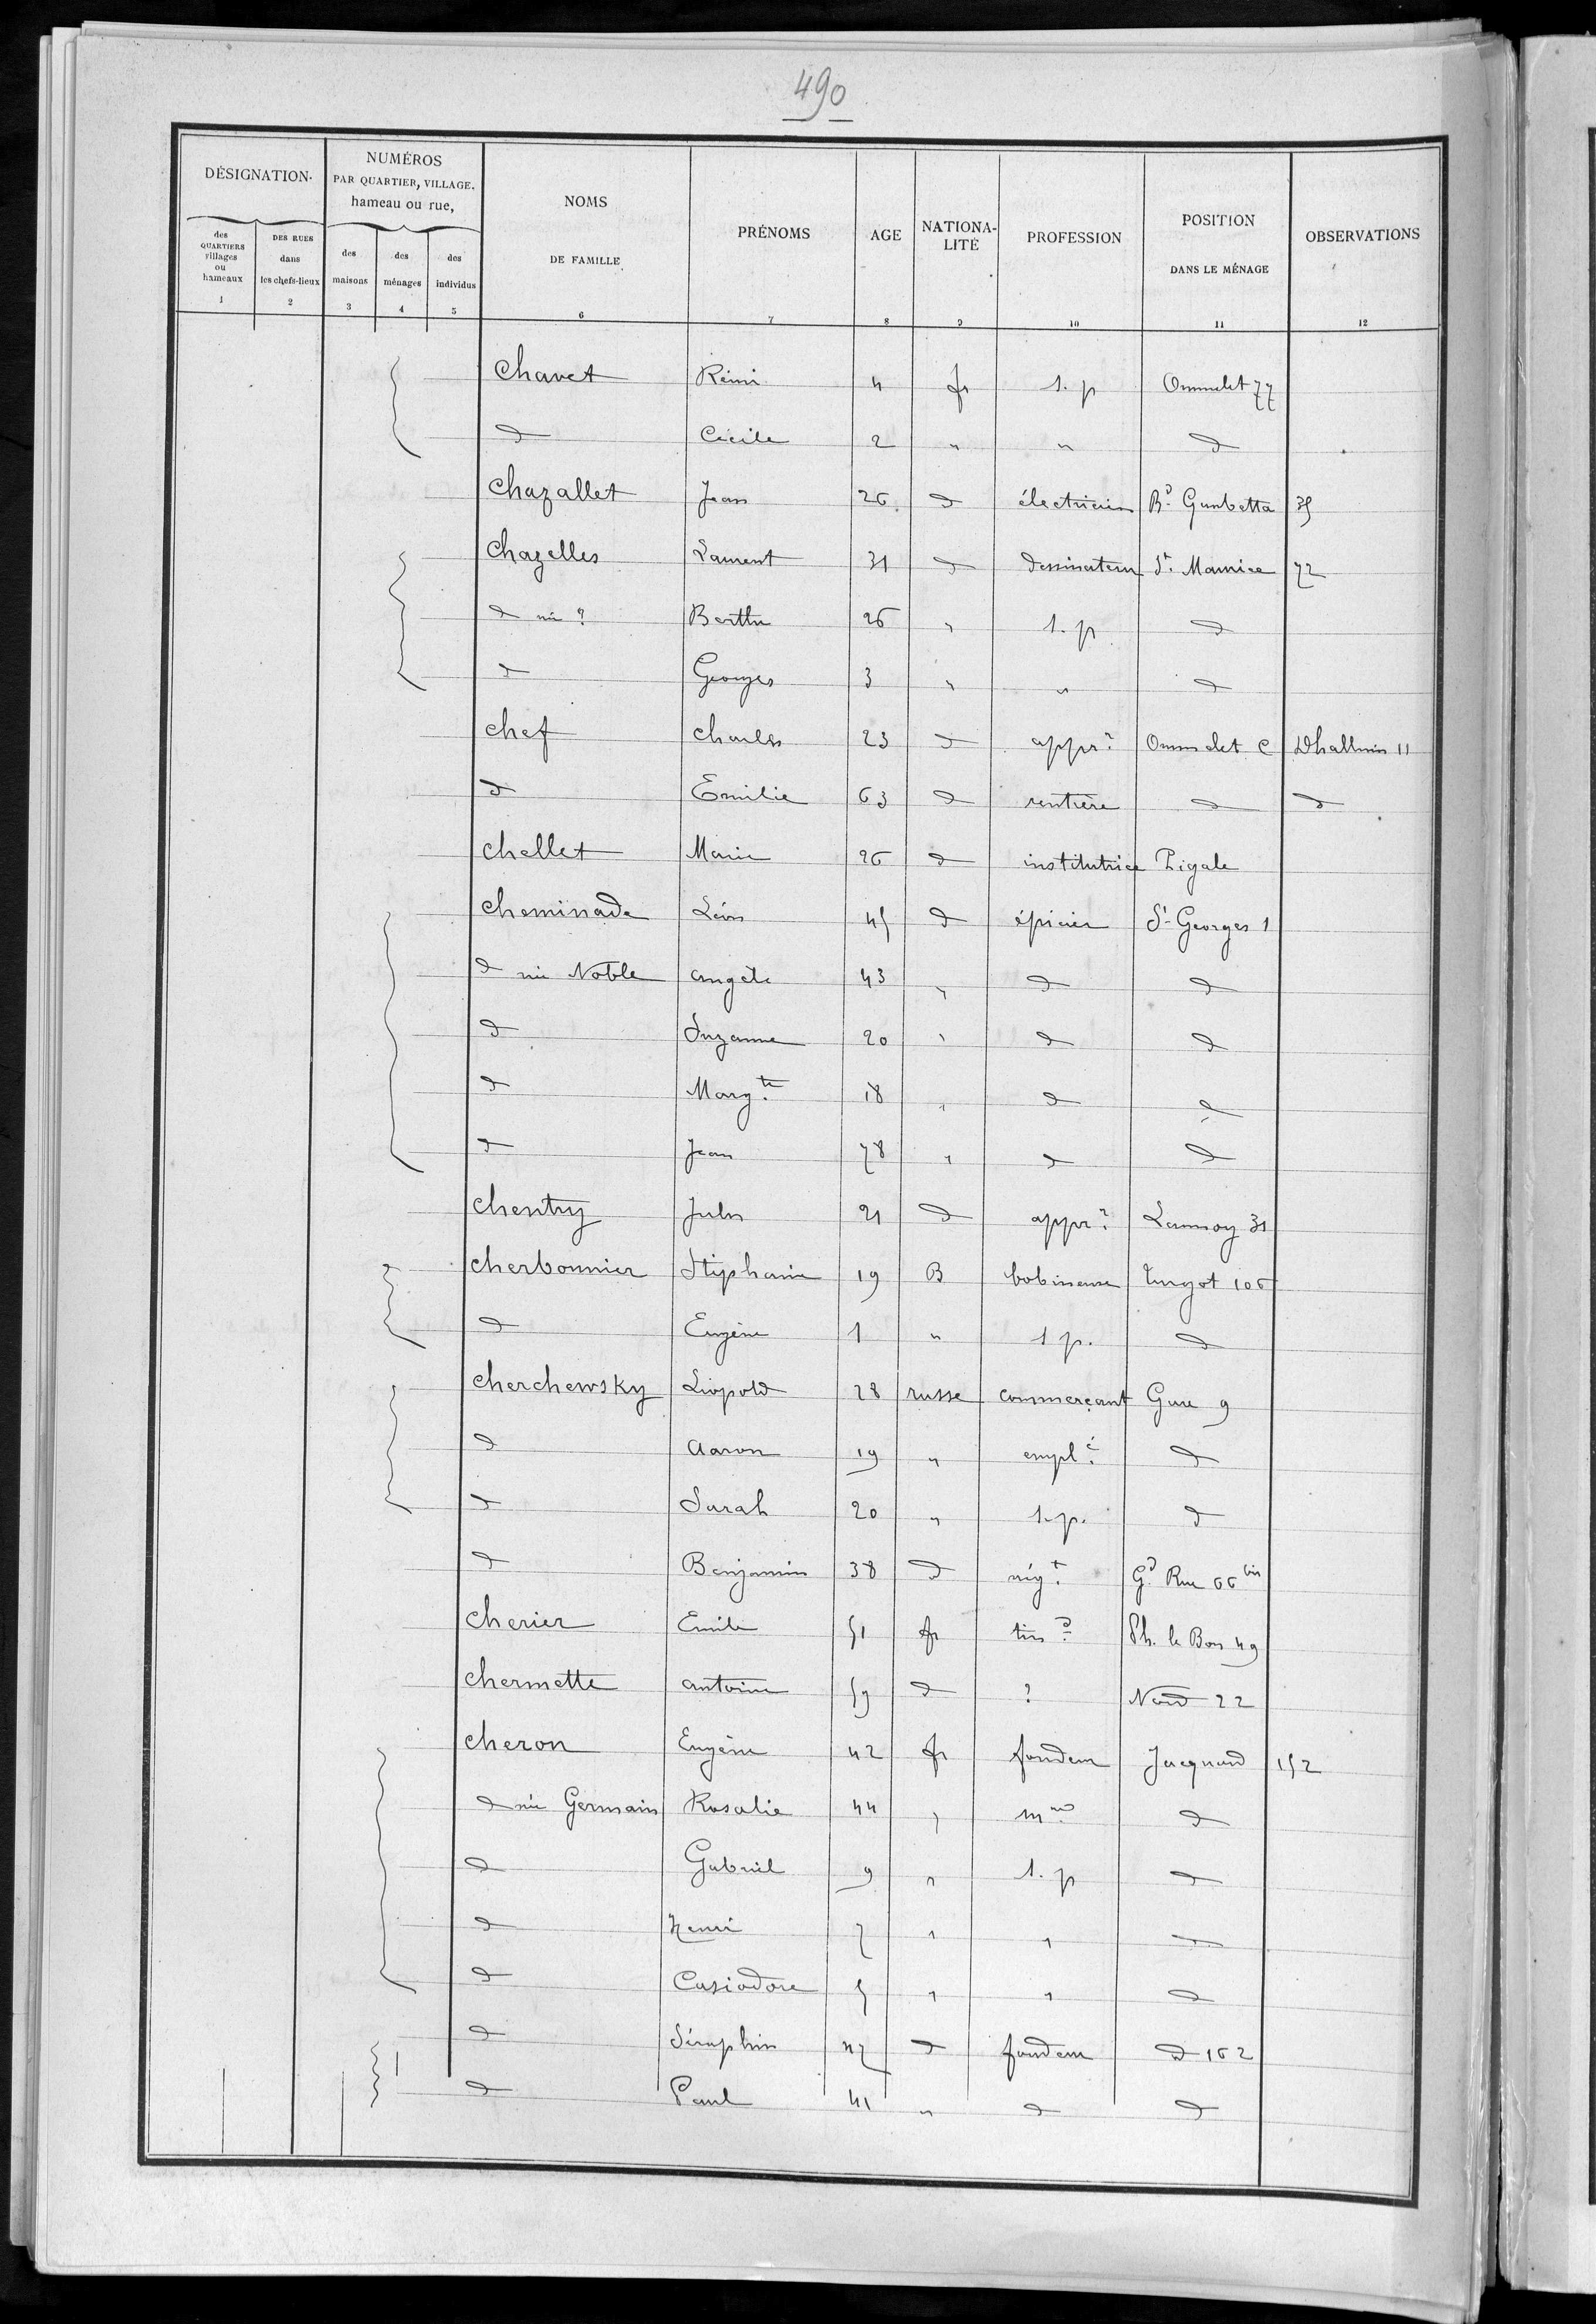 490
DÉSIGNATION.
NUMÉROS
PAR QUARTIER, VILLAGE,
hameau ou rue,
NOMS
DE FAMILLE
PRÉNOMS
AGE
NATIONA-
LITÉ
PROFESSION
POSITION
DANS LE MÉNAGE
OBSERVATIONS
des
QUARTIERS
villages
ou
hameaux
DES RUES
dans
les chefs-lieux
des
maisons
des
ménages
des
individus
1 2 3 4 5 6 7 8 9 10 11 12
Chavet Rémi 4 fr s. p Ommelet 77
d Cécile 2 " " d
Chazallet Jean 26 d électricien Bd Gambetta 35
Chazelles Laurent 31 d dessinateur St Maurice 72
d née ? Berthe 26 " s. p d
d Georges 3 " " d
Chef Charles 23 d appr? Ommelet C Dhalluin 11
d Emilie 63 d rentière d d
Chellet Marie 26 d institutrice Pigale
Cheminade Léon 45 d épicier St Georges 1
d née Noble Angèle 43 " d d
d Suzanne 20 " d d
d Margte 18 " d d
d Jean 78 " d d
Chentry Jules 21 d appr? Lannoy 31
Cherbonnier Stéphanie 19 B bobineuse Turgot 106
d Eugène 1 " s p. d
Cherchewsky Léopold 28 russe commerçant Gare 9
d Aaron 19 " emplé d
d Sarah 20 " s. p. d
d Benjamin 38 d négt Gd Rue 66 bis
Cherier Emile 51 fr tisd Ph. le Bon 49
Chermette Antoine 59 d ? Nord 22
Cheron Eugène 42 fr fondeur Jacquard 152
d née Germain Rosalie 44 " d
d Gabriel 9 " s. p d
d Henri 7 " " d
d Casiodore 5 " " d
d Séraphin 47 d fondeur d 162
d Paul 41 " d d